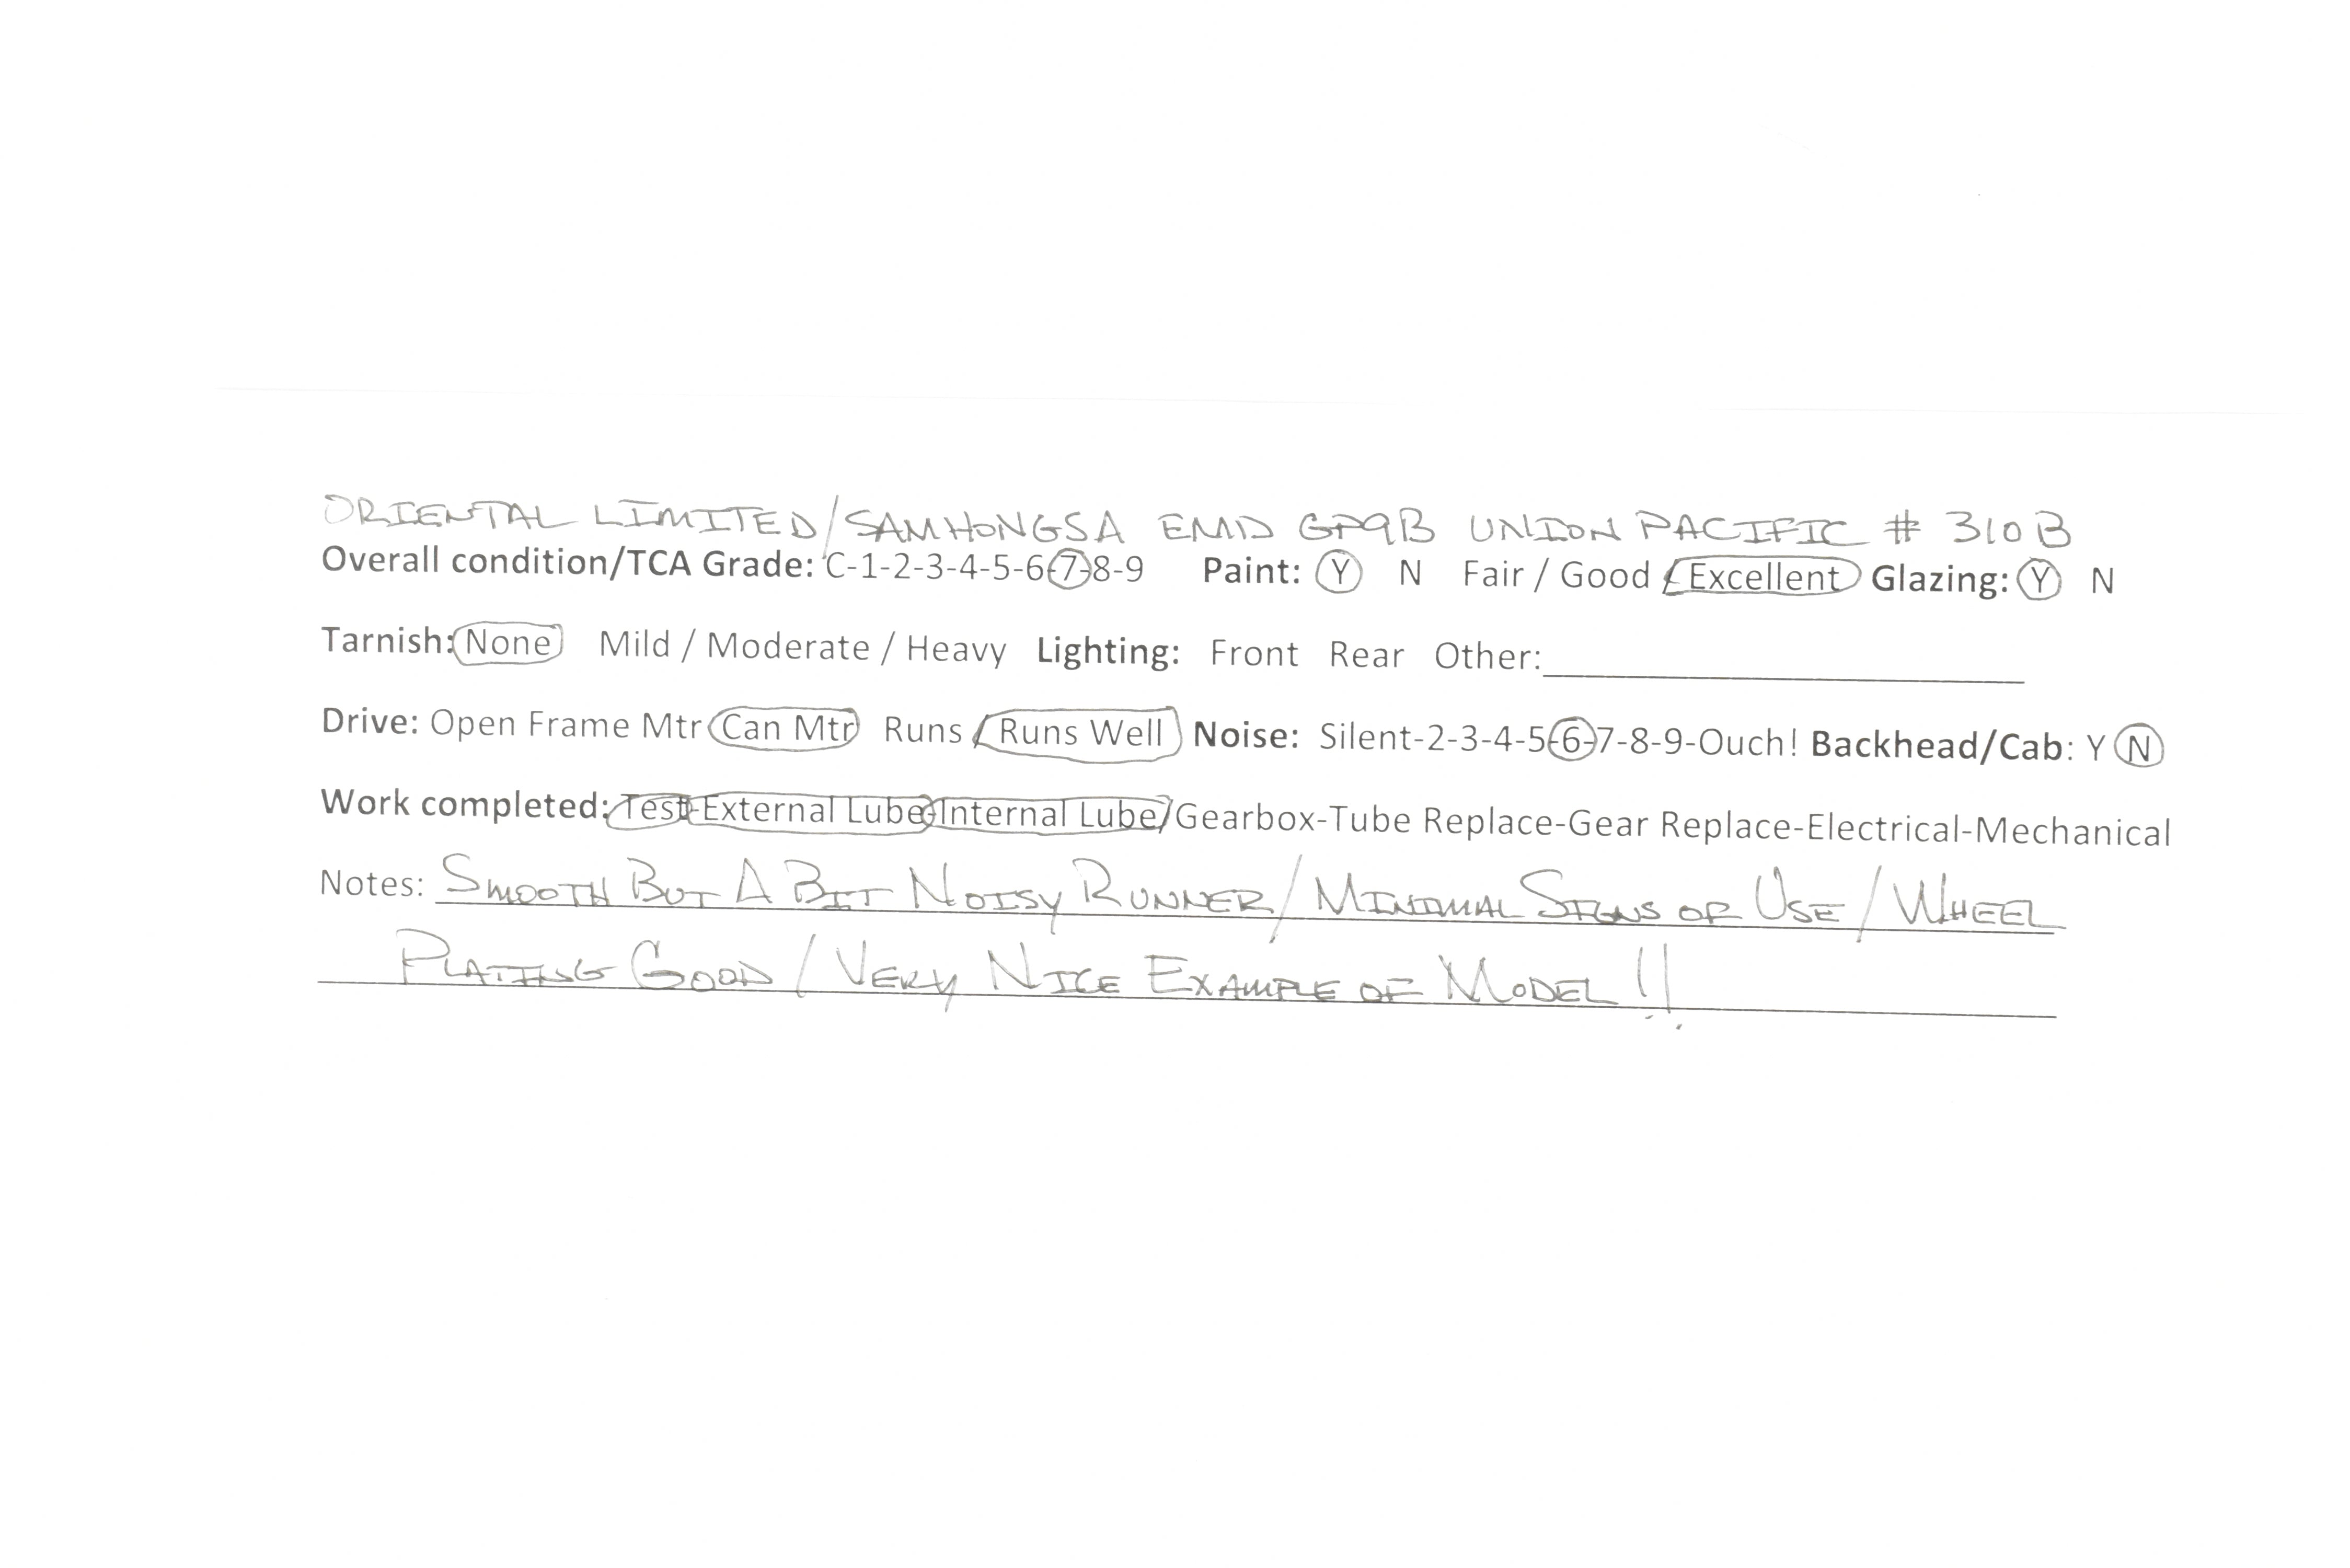 ORIENTAL LIMITED/SAMHONGSA EMD GP9B UNION PACIFIC # 310B
Overall condition/TCA Grade: C-1-2-3-4-5-6-7-8-9 Paint: Y N Fair / Good / Excellent Glazing: Y N
Tarnish: None Mild / Moderate / Heavy Lighting: Front Rear Other:
Drive: Open Frame Mtr Can Mtr Runs / Runs Well Noise: Silent-2-3-4-5-6-7-8-9-Ouch! Backhead/Cab: Y N
Work completed: Test-External Lube-Internal Lube/Gearbox-Tube Replace-Gear Replace-Electrical-Mechanical
Notes: SMOOTH BUT A BIT NOISY RUNNER/MINIMAL SIGNS OF USE/WHEEL
PLATING GOOD/VERY NICE EXAMPLE OF MODEL!!